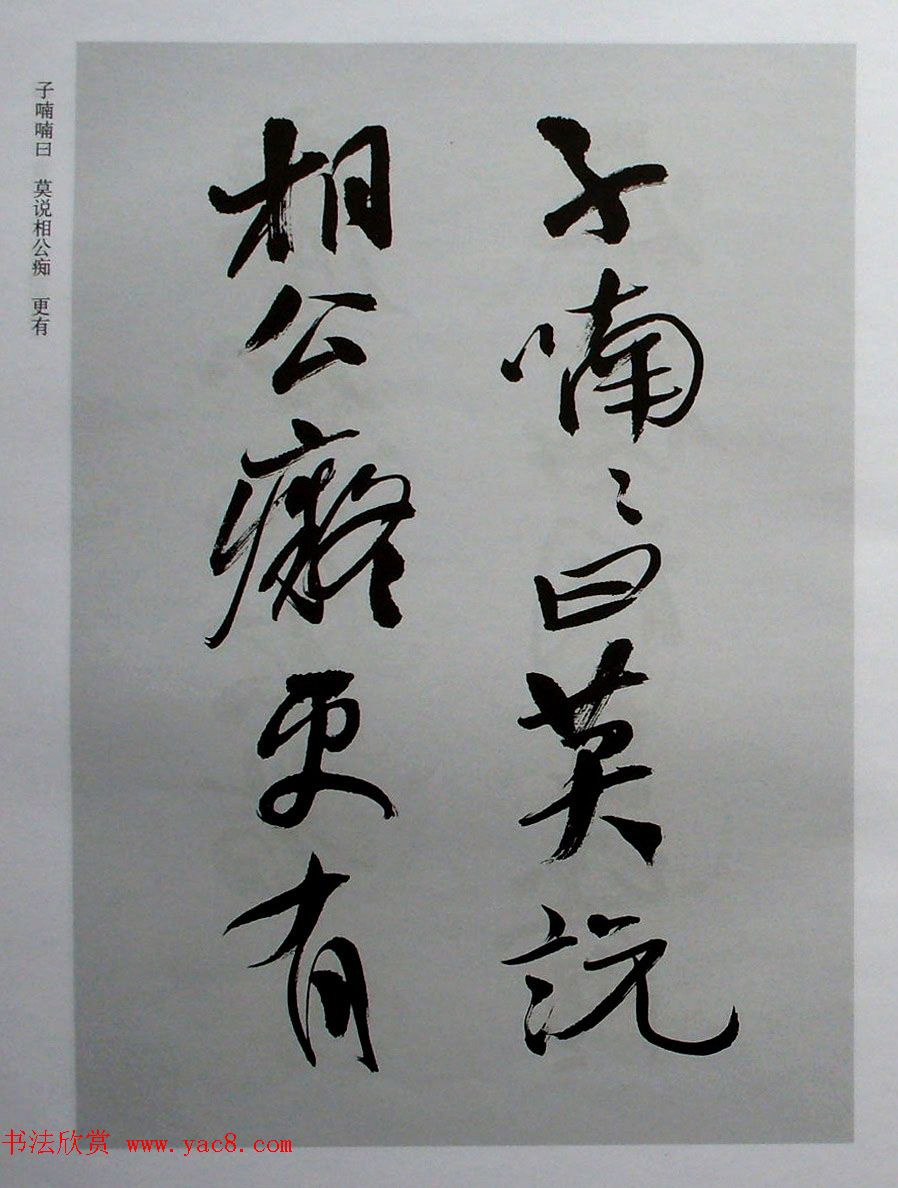 子喃々曰莫説
相公癡更有
子喃喃曰 莫说相公痴 更有
书法欣赏 www.yac8.com